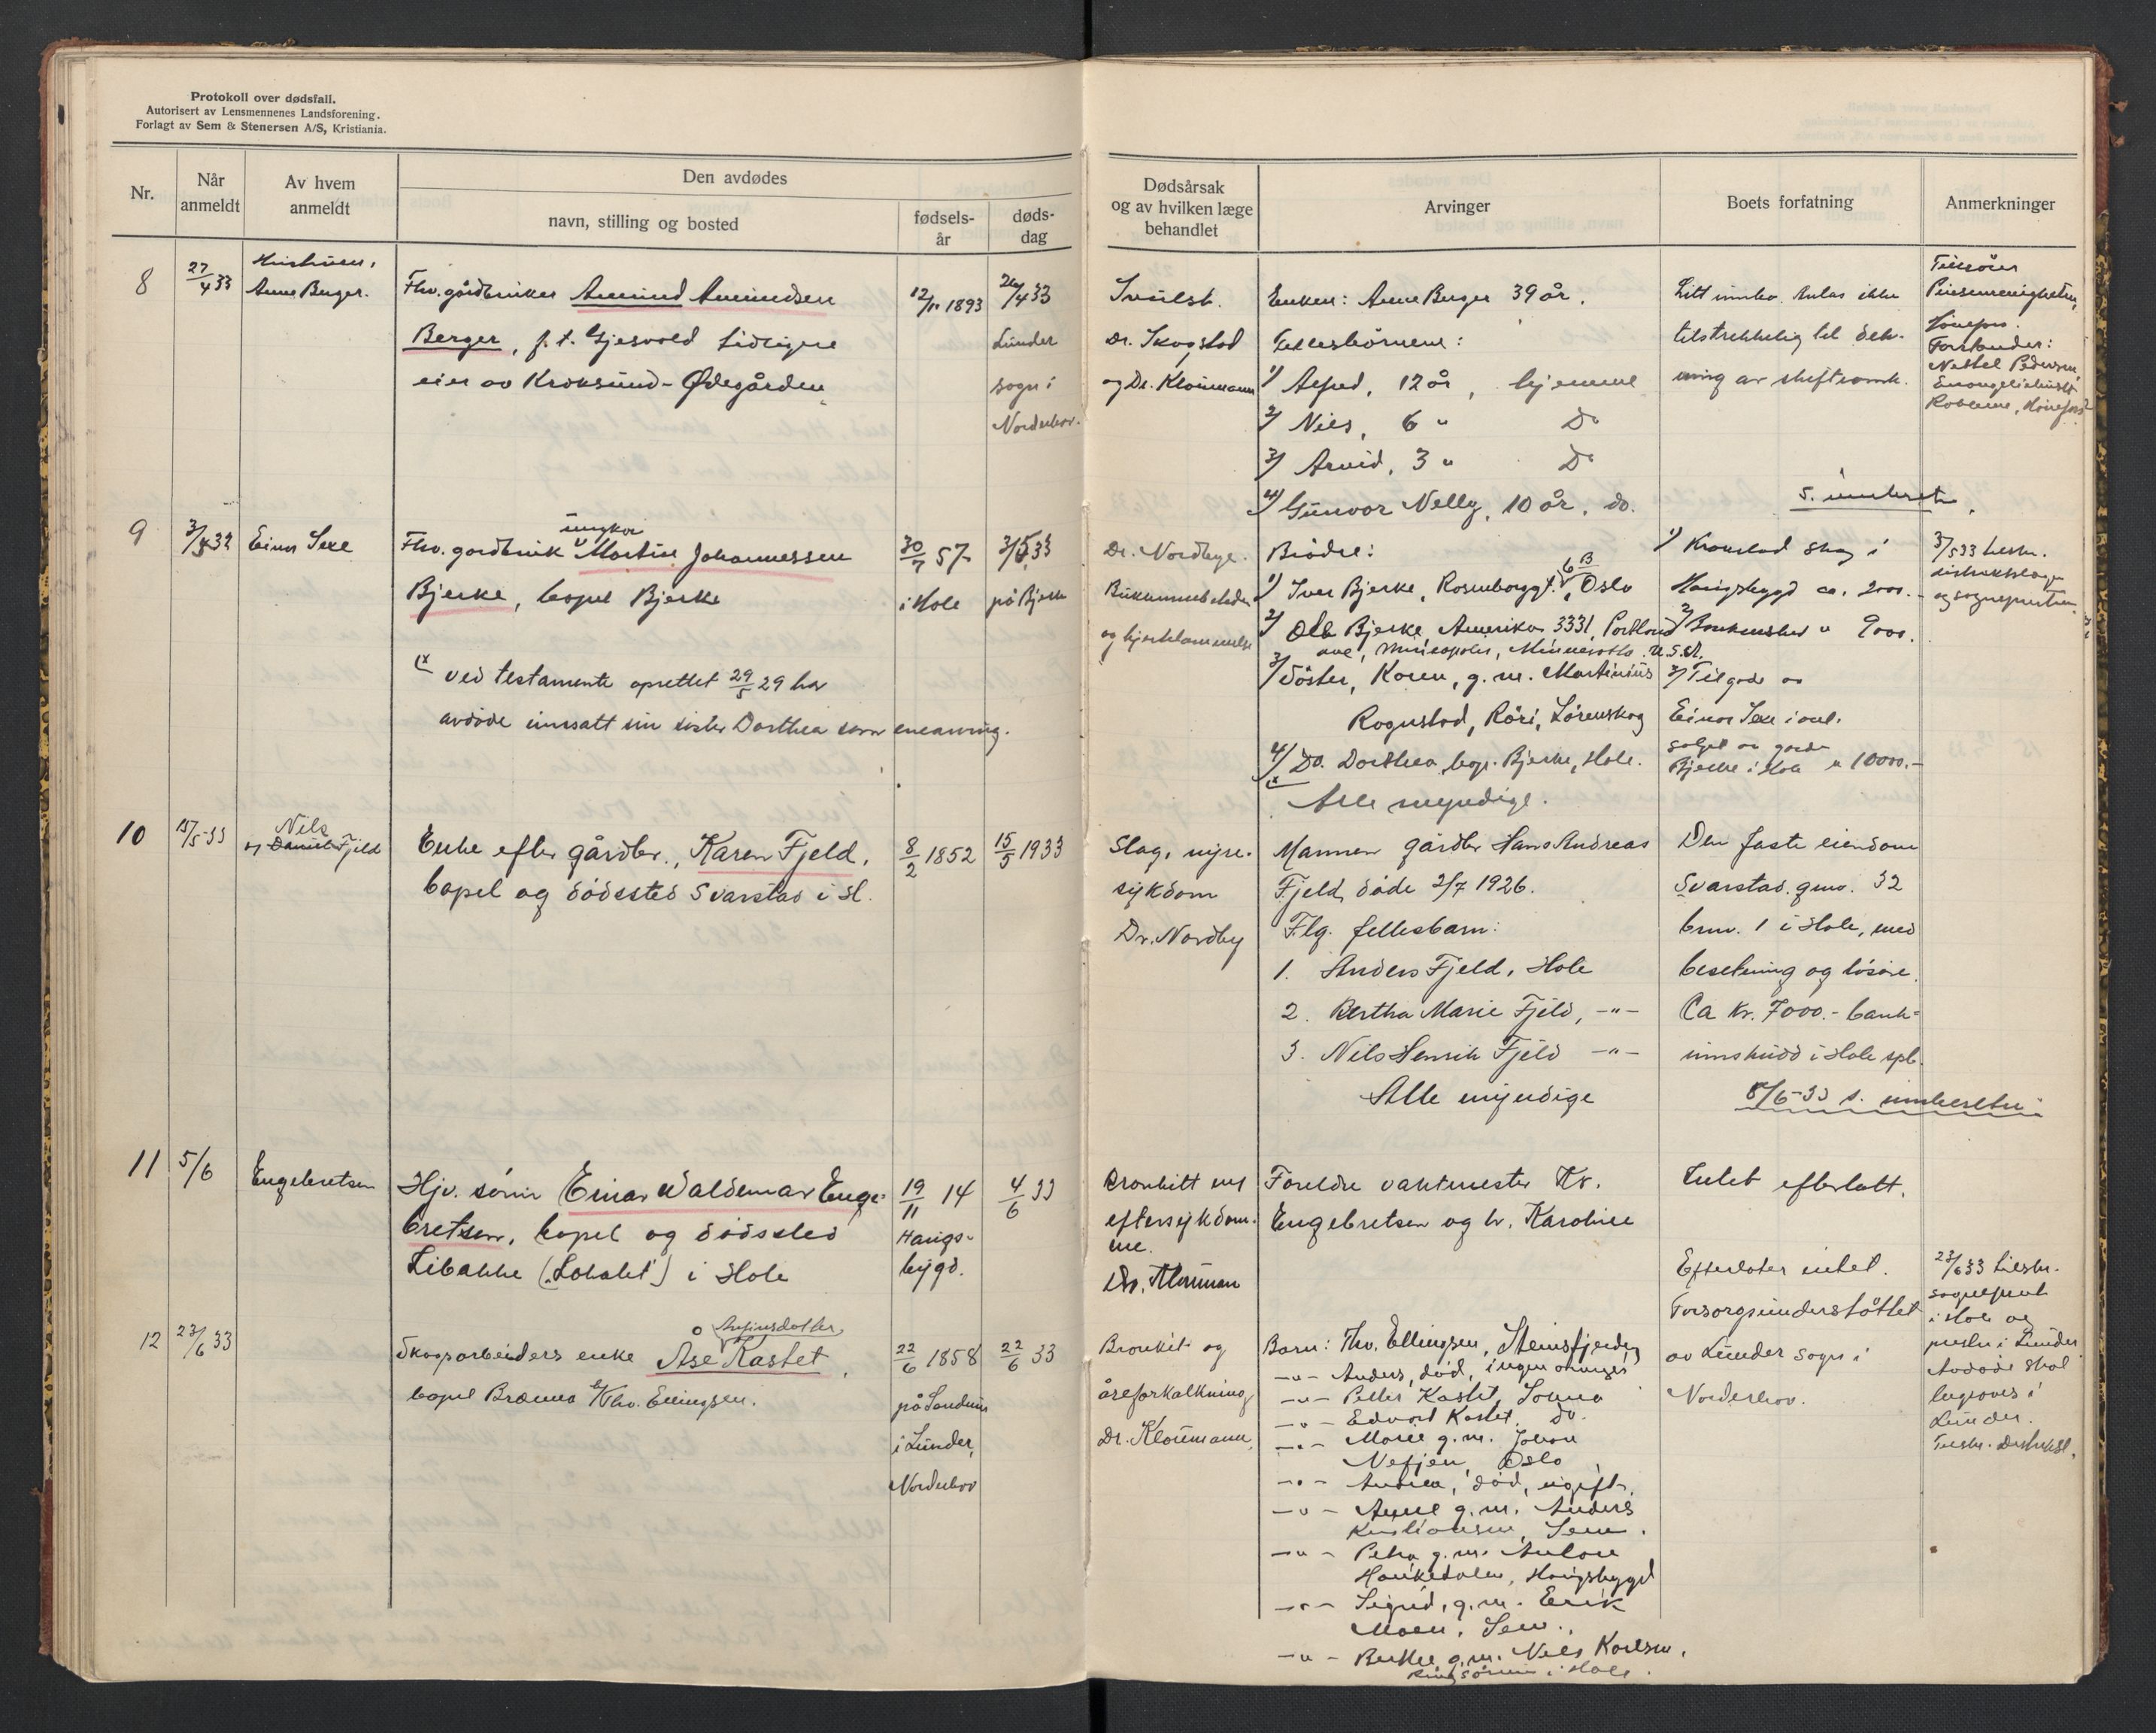 Protokoll over dødsfall.
Autorisert av Lensmennenes Landsforening.
Forlagt av Sem & Stenersen A/S, Kristiania.
Nr.
Når anmeldt
Av hvem anmeldt
Den avdødes
navn, stilling og bosted
fødsels-
år
døds-
dag
Dødsårsak
og av hvilken læge
behandlet
Arvinger
Boets forfatning
Anmerkninger
8
27/4 33
Hustruen,
Anne Berger.
Fhv. gårdbruker Amund Amundsen
Berger, f. t. Gjesvold tidligere
eier av Kroksund-Ødegården
12/11 1893
26/4 33
Lunder
sogn i
Norderhov.
Dr. Skogstad
og Dr. Kloumann
Enken: Anne Berger 39 år.
Fellesbörnene:
1) Alfred, 12 år, hjemme
2) Niels, 6 " Do
3) Arvid, 3 " Do
4) Gunvor Nelly, 10 år, do.
Litt innbo. Antas ikke
tilstrekkelig til dek-
ning av skifteomk.
Tilsöier
Pinsemenigheten,
Hönefoss.
Forstander:
9
3/5 33
Einar Sexe
ungkar
Fhv. gardbruk Martin Johannessen
Bjerke, bopel Bjerke
30/7 57
i Hole
3/5 33
på Bjerke
(x ved testamente oprettet 29/5 29 har
avdöde innsatt sin söster Dorthea som enearving.
Dr. Nordbye.
og hjertelammelse
Brödre:
1) Iver Bjerke, Rosenborggt. 6 B, Oslo
2) Ole Bjerke, Amerika 3331, Portland
ave, Minneapolis, Minnesota. U.S.A.
3) Söster, Karen, g. m. Martinius
Rognstad, Röri, Lörenskog
4) Do. Dorthea, bop. Bjerke, Hole.
(x
Alle myndige.
s. innberetn.
1) Krokstad skog i
Haugsbygd ca. 2000.-
2) Bankinskud " 9000.
3) Tilgode av
Einar Sexe i anl.
salget av garden
Bjerke i Hole " 10000.-
3/5 33 tilskr.
distriktslege
og sognepresten
10
15/5-33
Nils
og Daniel Fjeld
Enke efter gårdbr., Karen Fjeld,
bopel og dödssted Svarstad i H.
8/2 1852
15/5 1933
Slag, nyre-
sykdom
Dr. Nordby
Mannen gårdbr Hans Andreas
Fjeld, döde 2/7 1926.
Flg. fellesbarn:
1. Anders Fjeld, Hole
2. Bertha Marie Fjeld, -"-
3. Nils Henrik Fjeld -"-
Alle myndige
Den faste eiendom
Svarstad. gno. 32
brnr. 1 i Hole, med
besetning og lösöre.
Ca kr. 7000.- bank-
innskudd i Hole spb.
8/6-33 s. innberetn.
11
5/6
Engebretsen
Hjv. sönn Einar Waldemar Enge-
bretsen, bopel og dödssted
Libakke ("Lokalet") i Hole
19/11 14
Haugs-
bygd.
4/6 33
Bronkitt med
eftersykdom-
me.
Dr. Kloumann
Foreldre vaktmester Kr.
Engebretsen og h. Karoline
Intet efterlatt.
12
23/6 33
Skogsarbeiders enke Åse Kastet,
bopel Brænna h/Thv. Ellingsen.
22/6 1858
på Sandum
i Lunder,
Norderhov
22/6 33
Bronkit og
åreforkalkning
Dr. Kloumann
Barn: Thv. Ellingsen, Steinsfjerden
-"- Anders, död, ingen avinger
-"- Petter Kastet, Somma
-"- Edvart Kastet, do.
-"- Marie g. m. Johan
Nefjen, Oslo
-"- Andrea, död, ugift.
-"- Anne g. m. Anders
Kristiansen,
-"- Petra g. m. Anton
Haukedalen, Haugsbygd
-"- Sigrid, g. m. Erik
Moen,
-"- Berthe g. m. Nils Karlsen,
i Hole.
Efterlater intet.
Forsorgsunderstöttet
av Lunder sogn i
Norderhov.
23/6 33 tilskr.
sogneprest
i Hole og
presten i Lunder
Avdöde skal
begraves i
Lunder.
Tilskr. Distriktsl.